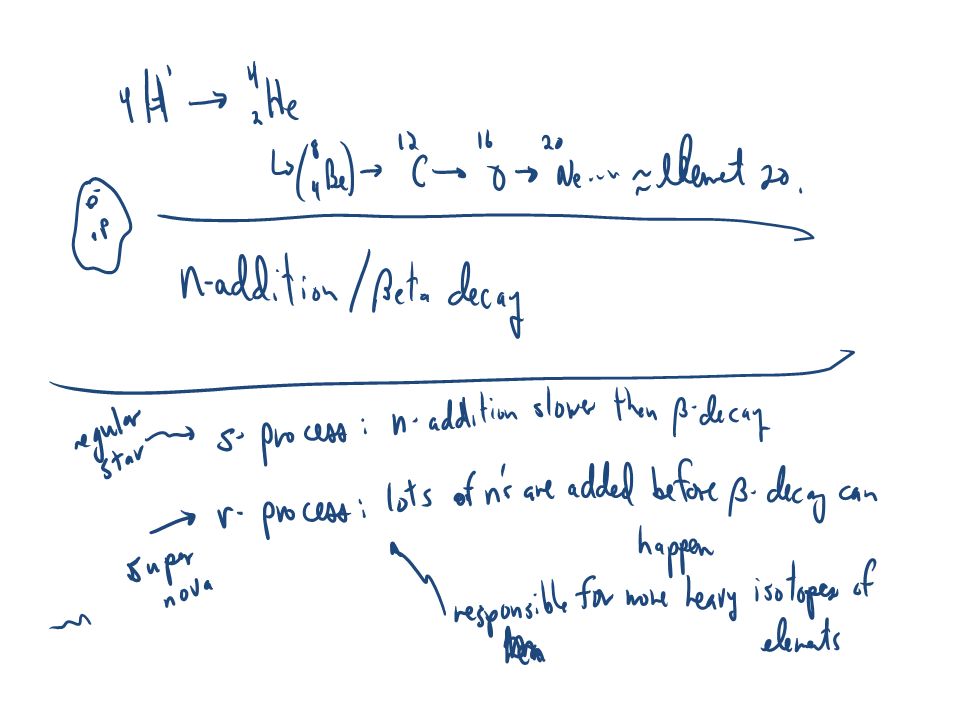 4 H¹ → ⁴₂He
↳ (⁸₄Be) → ¹²C → ¹⁶O → ²⁰Ne .... ≈ Elemet 20.
P
n-addition / βeta decay
regular star → s-process: n-addition slower then β-decay
super nova → r-process: lots of n's are added before β-decay can
happen
responsible for more heavy isotopes of
elements